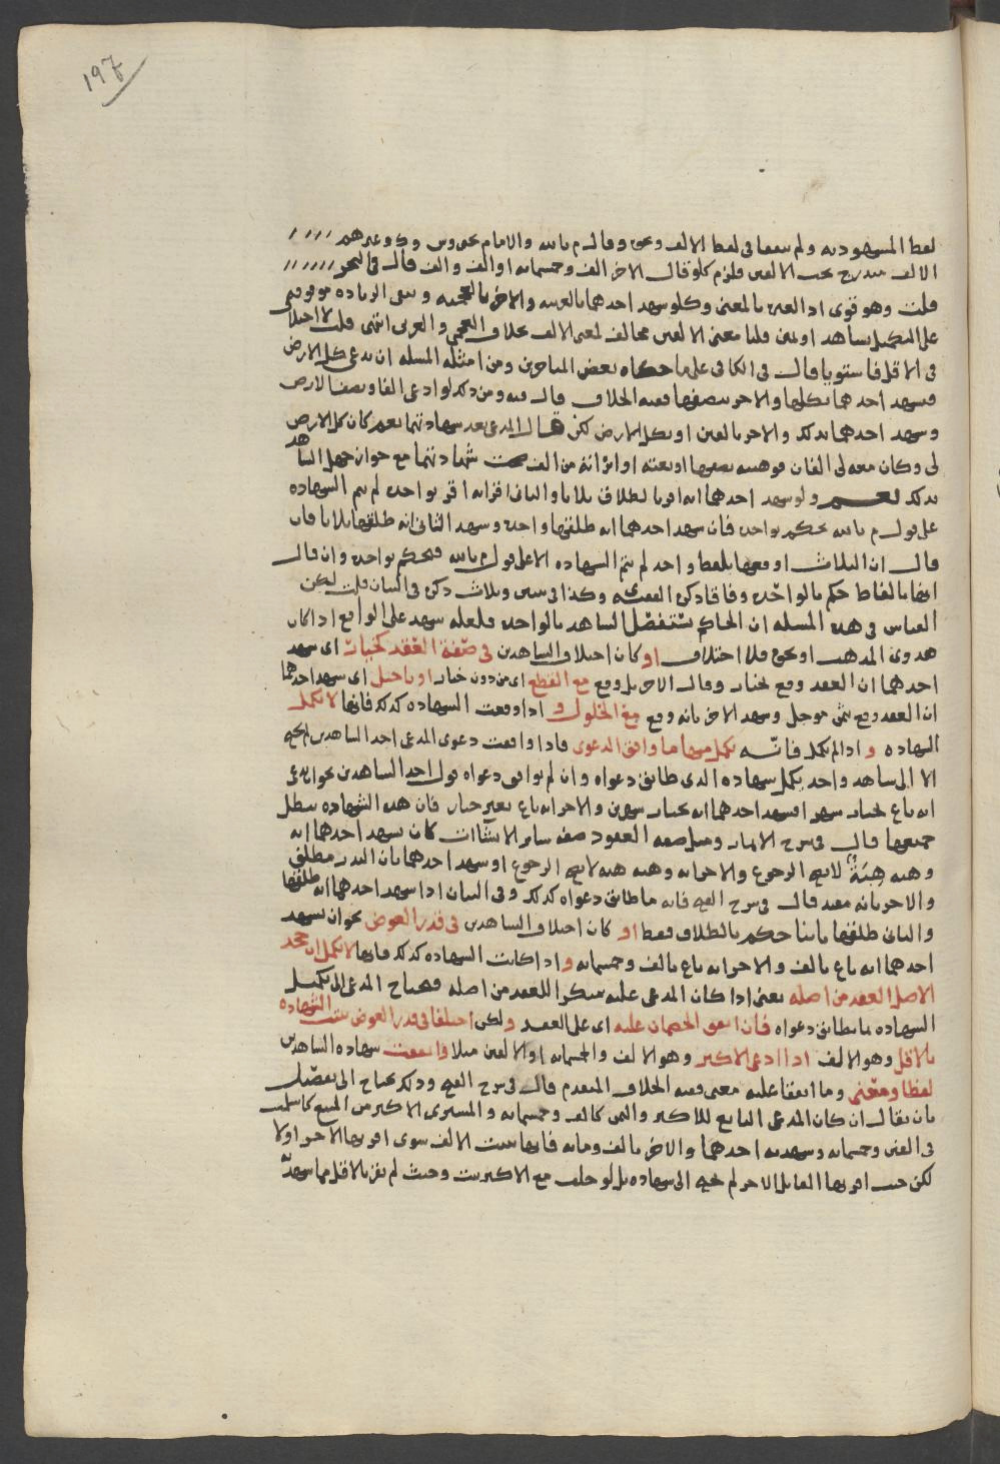 197
لفظ المشهود به ولم يتفقا في لفظ الالف ونحن وقال م بالله والامام يحيى وش وك وغيرهم
الالف مندرج تحت الالفين فلزم كلو قال الاخر الف وخمسمائه او الف والف قال في البحر
قلت وهو قوي اذ العبرة بالمعنى وكلو شهد احدهما بالعربيه والاخر بالعجميه وتبقى الزياده موقوفه
على التكميل بشاهد او يمين قلنا معنى الالفين مخالف لمعنى الالف بخلاف العجمي والعربي انتهى قلت لا اختلاف
في الاقل فاستويا قال في الكافي على ما حكاه بعض المتاخرين ومن امثله المسله ان يدعي كل الارض
فيشهد احدهما بكلها والاخر بنصفها ففيه الخلاف قال فيه ومن ذلك لو ادعى الفا ونصف الارض
وشهد احدهما بذلك والاخر بالفين او بكل الارض لكن قال المدعي بعد شهادتهما نعم كان كل الارض
لي وكان معه لي الفان فوهبته نصفها او بعته او ابرأته من الف صحت شهادتهما مع جواز جهل الشاهد
بذلك نعم ولو شهد احدهما انه اقر بالطلاق ثلاثا والثاني اقر انه اقر بواحده لم تتم الشهاده
على قول م بالله يحكم بواحده فان شهد احدهما انه طلقها واحده وشهد الثاني انه طلقها ثلاثا فان
قال ان الثلاث اوقعها بلفظ واحد لم تتم الشهاده الا على قول م بالله فيحكم بواحده وان قال
انها بالفاظ حكم بالواحده وفاقا ذكره الفقيه وكذا في وثلاث ذكره في البيان قلت لكن
القياس في هذه المسله ان الحاكم يستفصل الشاهد بالواحده فلعله شهد على الواقع اذا كان
هدوي المذهب او نحوه فلا اختلاف او كان اختلاف الشاهدين في صفة العقد كخيار اي شهد
احدهما ان العقد وقع بخيار وقال الاخر بل وقع مع القطع اي من دون خيار او تاجيل اي شهد احدهما
ان العقد وقع بثمن موجل وشهد الاخر بانه وقع مع الحلول و اذا وقعت الشهاده كذلك فانها لا تكمل
الشهاده و اذا لم تكمل فانه يكمل منهما ما وافق الدعوى فاذا وافقت دعوى المدعي احد الشاهدين لم يحتج
الا الى شاهد واحد يكمل شهاده الذي طابق دعواه وان لم يوافق دعواه قول احد الشاهدين نحو ان يدعي
انه باع بخيار شهر فيشهد احدهما انه بخيار شهرين والاخر انه باع بغير خيار فان هذه الشهاده تبطل
جميعها قال في شرح الاثمار ومثل صفه العقود صفه سائر الانشاات كان يشهد احدهما انه
وهبه هبة لا يصح الرجوع والاخر انه وهبه هبه لا يصح الرجوع او شهد احدهما بان النذر مطلق
والاخر بانه مقيد قال في شرح الفتح فانه ما طابق دعواه كذلك وفي البيان اذا شهد احدهما انه طلقها
والثاني طلقها بائنا حكم بالطلاق فقط او كان اختلاف الشاهدين في قدر العوض نحو ان يشهد
احدهما انه باع بالف والاخر انه باع بالف وخمسمائه و اذا كانت الشهاده كذلك فانها لا تكمل ان جحد
الاصل العقد من اصله يعني اذا كان المدعى عليه منكرا للعقد من اصله فيحتاج المدعي الى تكميل
الشهاده بما يطابق دعواه فان اتفق الخصمان عليه اي على العقد ولكن اختلفا في قدر العوض ثبت الشهاده
بالاقل وهو الالف اذا ادعى الاكثر وهو الالف والخمسمائه او الالفين مثلا واتفقت شهاده الشاهدين
لفظا ومعنى وما اتفقا عليه معنى ففيه الخلاف المتقدم قال في شرح الفتح وذلك يحتاج الى تفصيل
بان يقال ان كان المدعي البايع للاكثر والثمن كالف وخمسمائه والمشتري الاكثر من المبيع كاسلمت
في الفين وخمسمائه وشهد به احدهما والاخر بالف ومائه فانها تثبت الالف سوى اقر بها الاخر او لا
لكن حيث اقر بها القابل الاخر لم يحتج الى شهاده بل لو حلف مع الاكثر ثبت وحيث لم يقر بالاقل مما شهد به